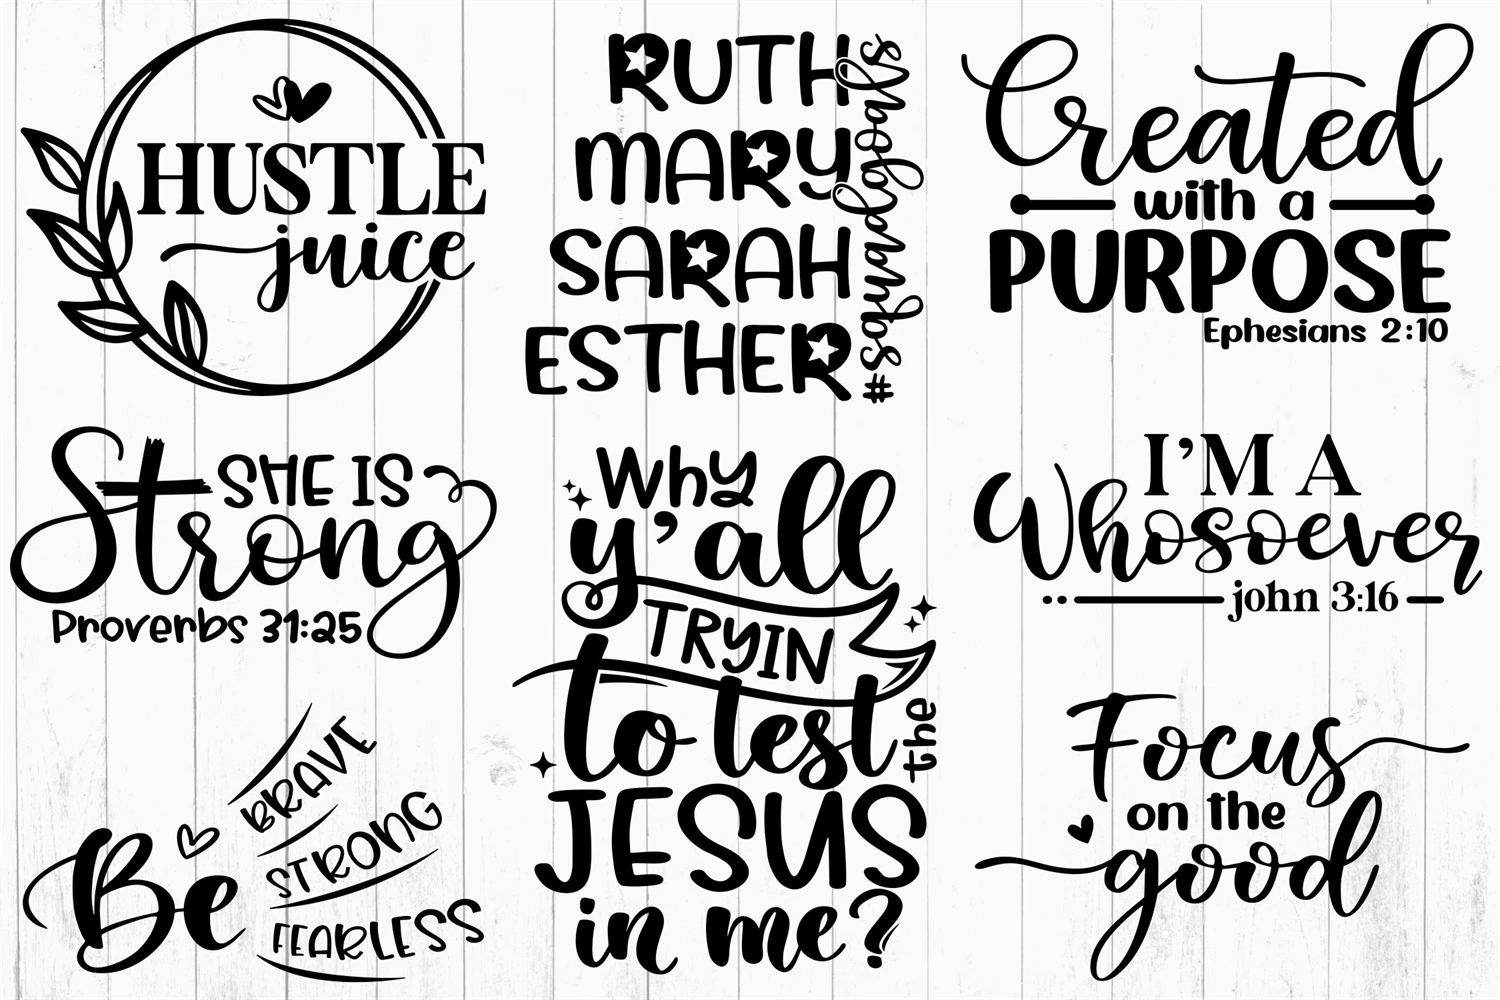 HUSTLE
juice
RUTH
MARY
SARAH
ESTHER
#squadgoals
Created
with a
PURPOSE
Ephesians 2:10
SHE IS
Strong
Proverbs 31:25
Why
y'all
TRYIN
to test
the
JESUS
in me?
I'M A
Whosoever
john 3:16
Be
BRAVE
STRONG
FEARLESS
Focus
on the
good